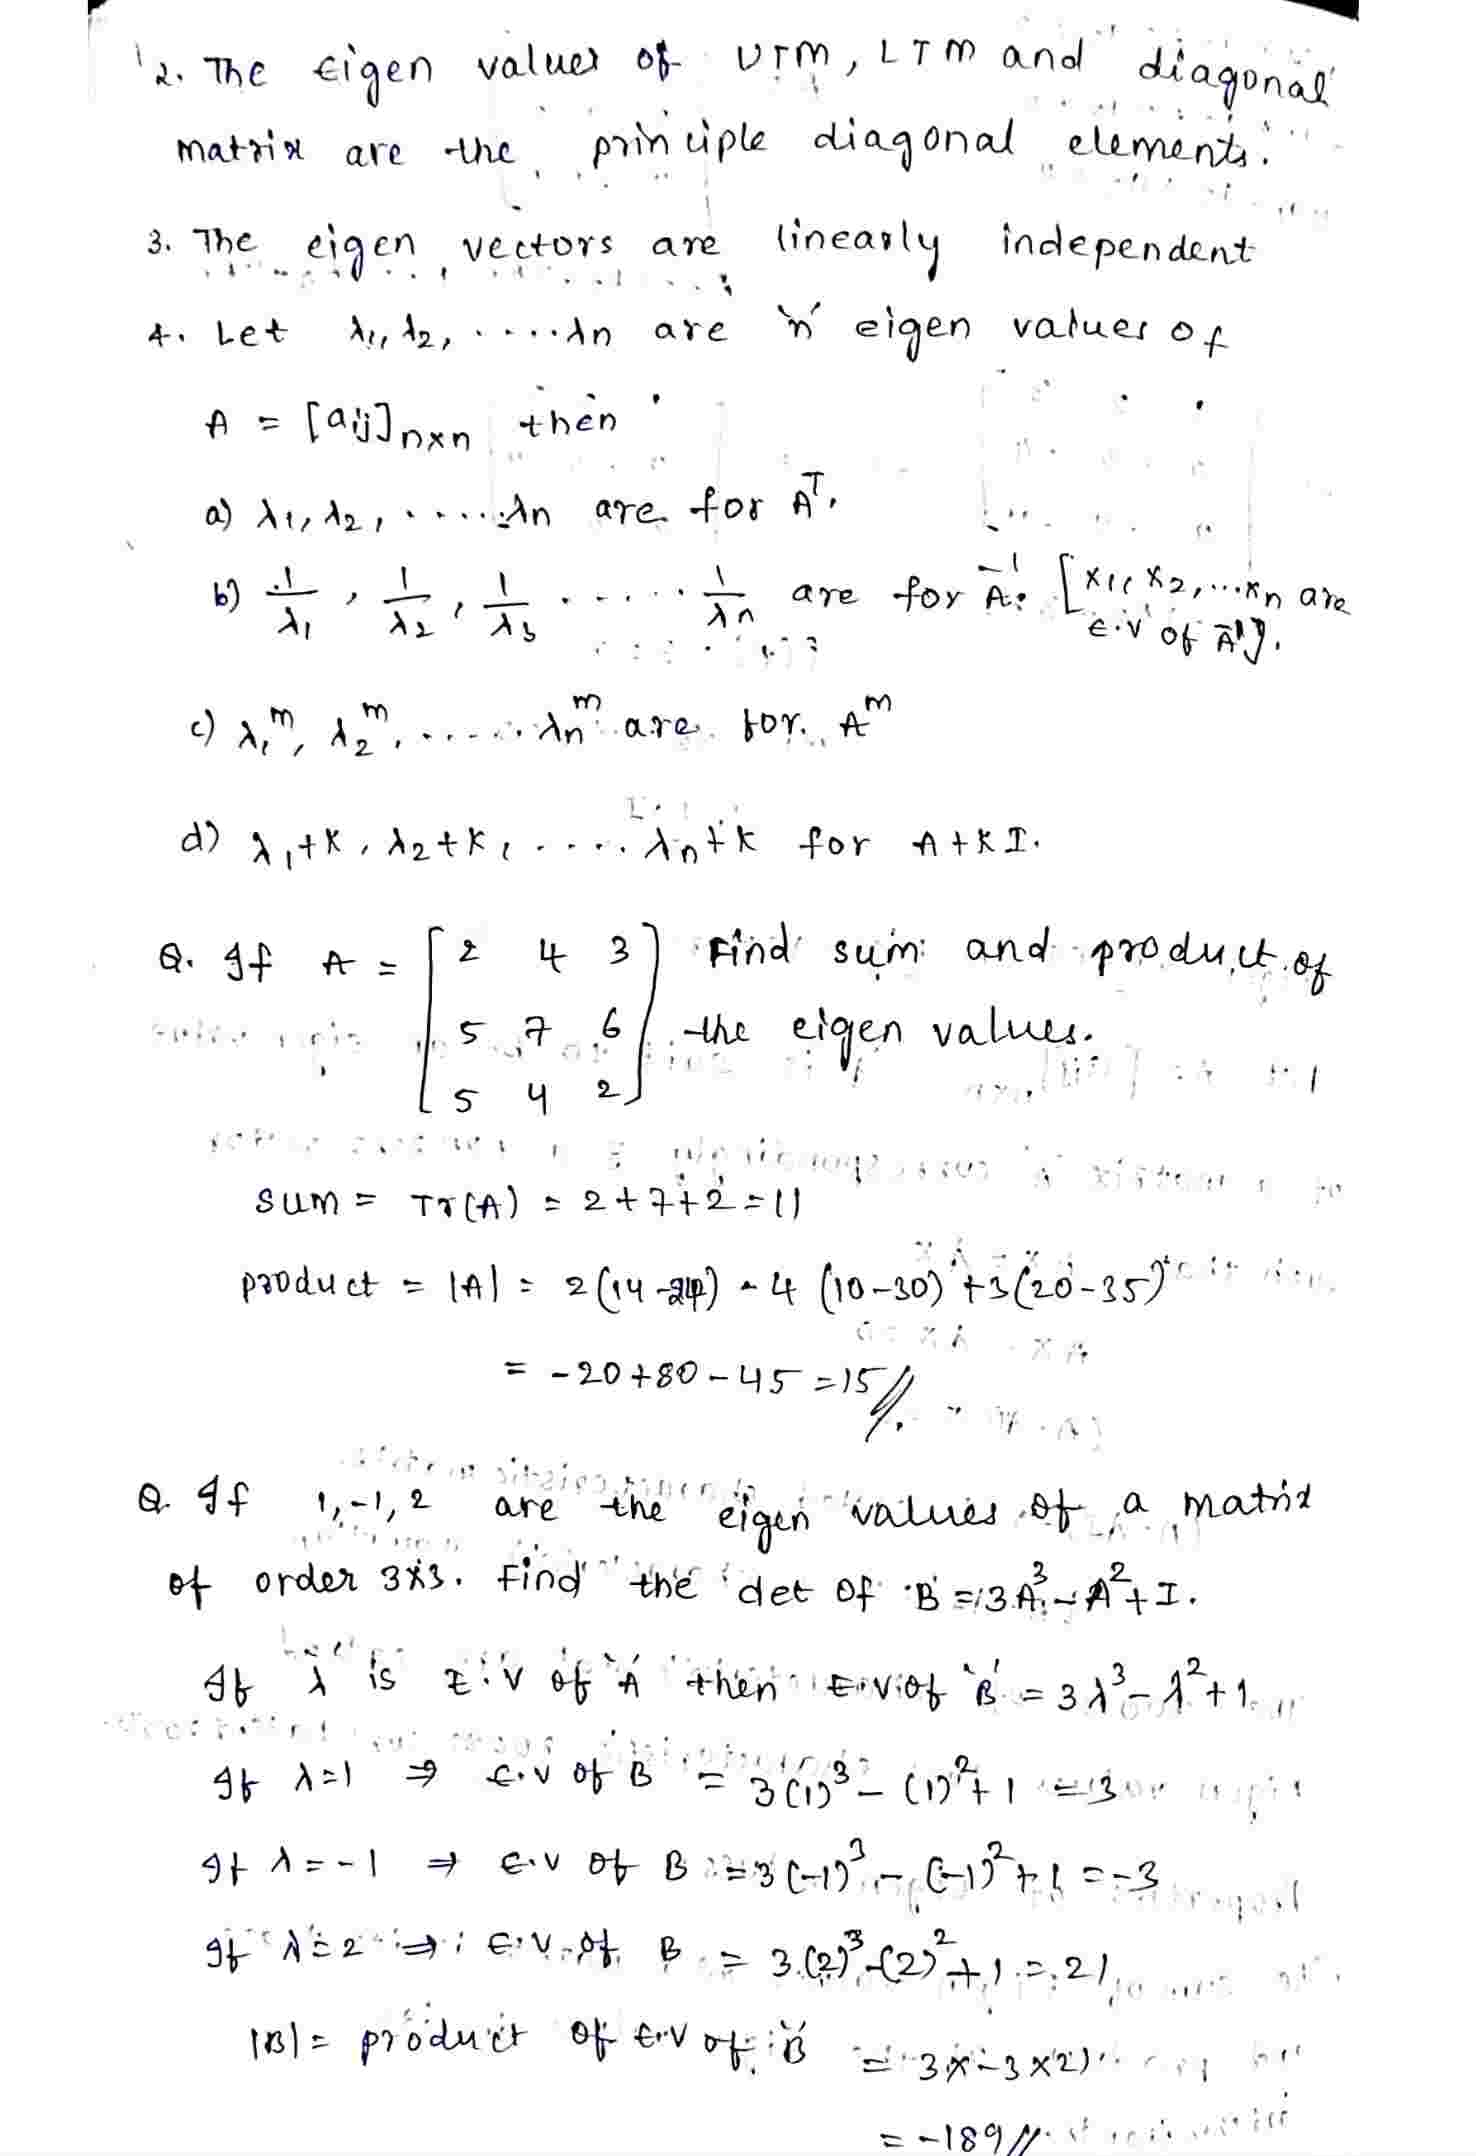 2. The Eigen values of UTM, LTM and diagonal
matrix are the principle diagonal elements.
3. The eigen vectors are linearly independent
4. Let λ1, λ2, .....λn are 'n' eigen values of
A = [aij]n×n then
a) λ1, λ2, .....λn are for A^T.
b) 1/λ1, 1/λ2, 1/λ3 ...... 1/λn are for A^-1. [x1, x2, ...xn are
E.V of A^-1].
c) λ1^m, λ2^m, ......λn^m are for A^m
d) λ1+K, λ2+K, .... λn+K for A+KI.
Q. If A = [2 4 3 Find sum and product of
5 7 6 the eigen values.
5 4 2]
sum = Tr(A) = 2+7+2 = 11
product = |A| = 2(14-24) - 4(10-30) + 3(20-35)
= -20+80-45 = 15//.
Q. If 1, -1, 2 are the eigen values of a matrix
of order 3x3. Find the det of B = 3A^3 - A^2 + I.
If λ is E.V of 'A' then E.V of 'B' = 3λ^3 - λ^2 + 1
If λ=1 ⇒ E.V of B = 3(1)^3 - (1)^2 + 1 = 3
If λ=-1 ⇒ E.V of B = 3(-1)^3 - (-1)^2 + 1 = -3
If λ=2 ⇒ E.V of B = 3(2)^3 - (2)^2 + 1 = 21
|B| = product of E.V of 'B' = 3x-3x21
= -189//